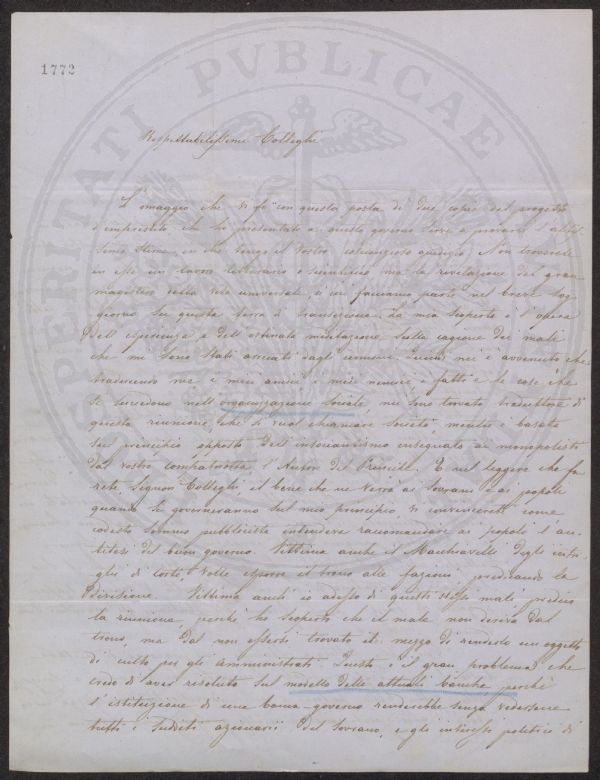 PROSPERITATI PVBLICAE
1772
Rispettabilissimi Colleghi
L'omaggio che vi fo con questa posta di due copie del progetto
d'imprestito che ho presentato a questo governo serve a provarvi l'altis
sima stima in che tengo il Vostro giudizio. Non troverete
in esse un lavoro letterario o scientifico ma la rivelazione del gran
magistero della vita universale, a cui facciamo parte nel breve sog
giorno su questa terra di transizione. La mia scoperta è l'opera
dell'esperienza e dell'ostinata meditazione sulla cagione dei mali
che mi sono stati arrecati dagli uomini. Quindi mi è avvenuto che
trascorrendo me i miei amici, i miei nemici, i fatti e le cose che
si succedono nell'organizzazione sociale, mi sono trovato traduttore di
questa riunione, che si vuol chiamare società mentre è basata
sul principio opposto dell' insegnato ai monopolisti
dal vostro compatriotta, l'Autore del Principe. E nel leggere che fa
rete, Signori Colleghi il bene che ne verrà ai sovrani e ai popoli
quando si governeranno sul mio principio, vi convincerete come
codesto sommo pubblicista intendeva raccomandare ai popoli l'an
titesi del buon governo. Vittima anche il Macchiavelli degli intri
ghi di Corte, volle esporre il trono alle fazioni, predicando la
divisione. Vittima anch'io adesso di questi stessi mali predico
la riunione, perché ho scoperto che il male non deriva dal
trono, ma dal non essersi trovato il mezzo di renderlo un oggetto
di culto per gli amministrati. Questo è il gran problema che
credo di aver risoluto sul modello delle attuali banche perchè
l'istituzione di una banca-governo renderebbe senza
tutti i sudditi azionarii del Sovrano, e gli interessi politici di